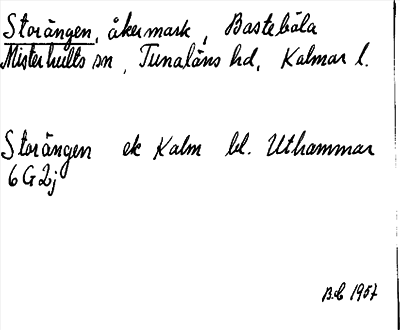 Storängen, åkermark, Bastebäla
Misterhults sn, Tunaläns hd, Kalmar l.
Storängen ek Kalm bl. Uthammar
6G2j
1957